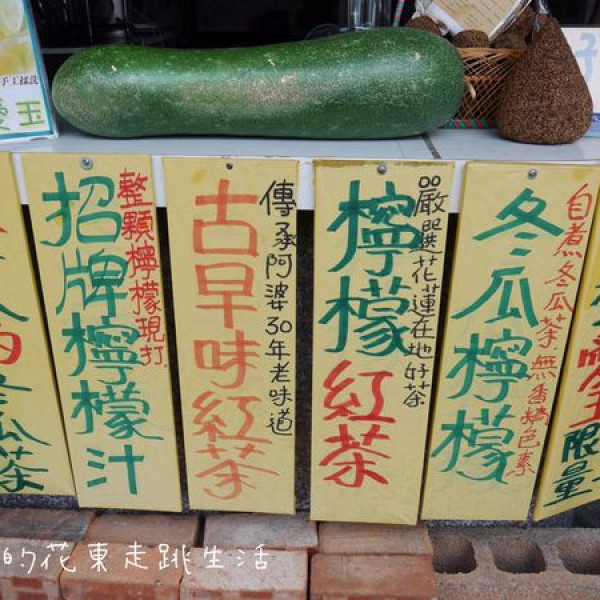 手工搓洗
愛玉
冬瓜茶
招牌檸檬汁
整顆檸檬現打
古早味紅茶
傳承阿婆30年老味道
檸檬紅茶
嚴選花蓮在地好茶
冬瓜檸檬
自煮冬瓜茶無香精色素
限量
的花東走跳生活